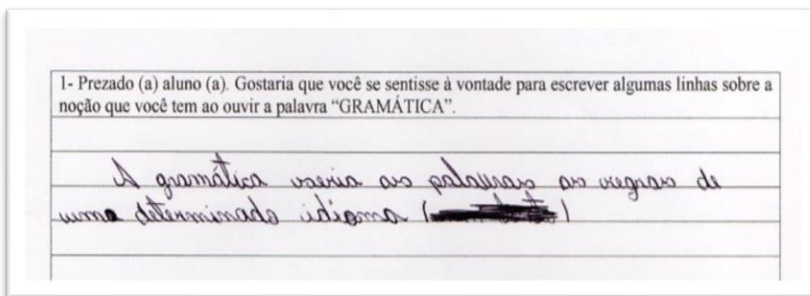 1- Prezado (a) aluno (a). Gostaria que você se sentisse à vontade para escrever algumas linhas sobre a
noção que você tem ao ouvir a palavra “GRAMÁTICA”.
A gramática seria as palavras as regras de
uma determinado idioma (